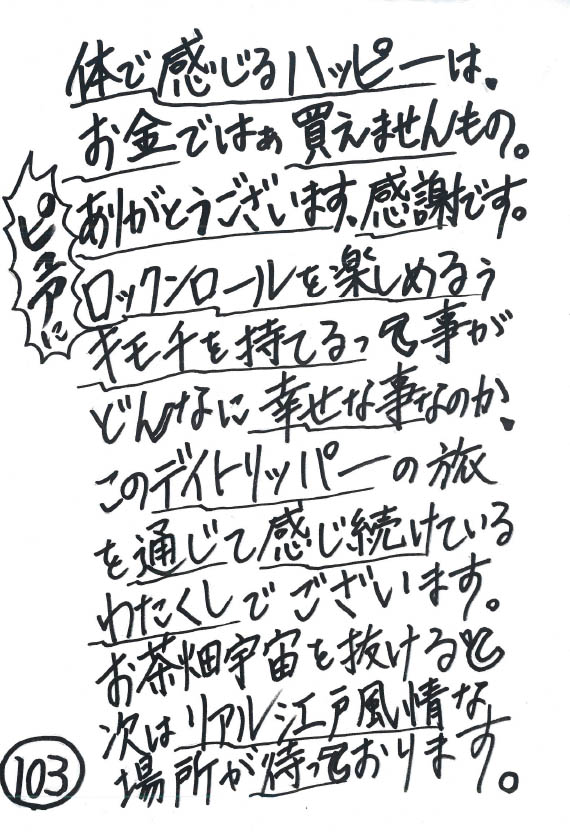 体で感じるハッピーは、
お金ではぁ買えませんもの。
ありがとうございます、感謝です。
ピュアに
ロックンロールを楽しめるぅ
キモチを持てるって事が
どんなに幸せな事なのか、
このデイトリッパーの旅
を通じて感じ続けている
わたくしでございます。
お茶畑宇宙を抜けると
次はリアル江戸風情な
場所が待っております。
103